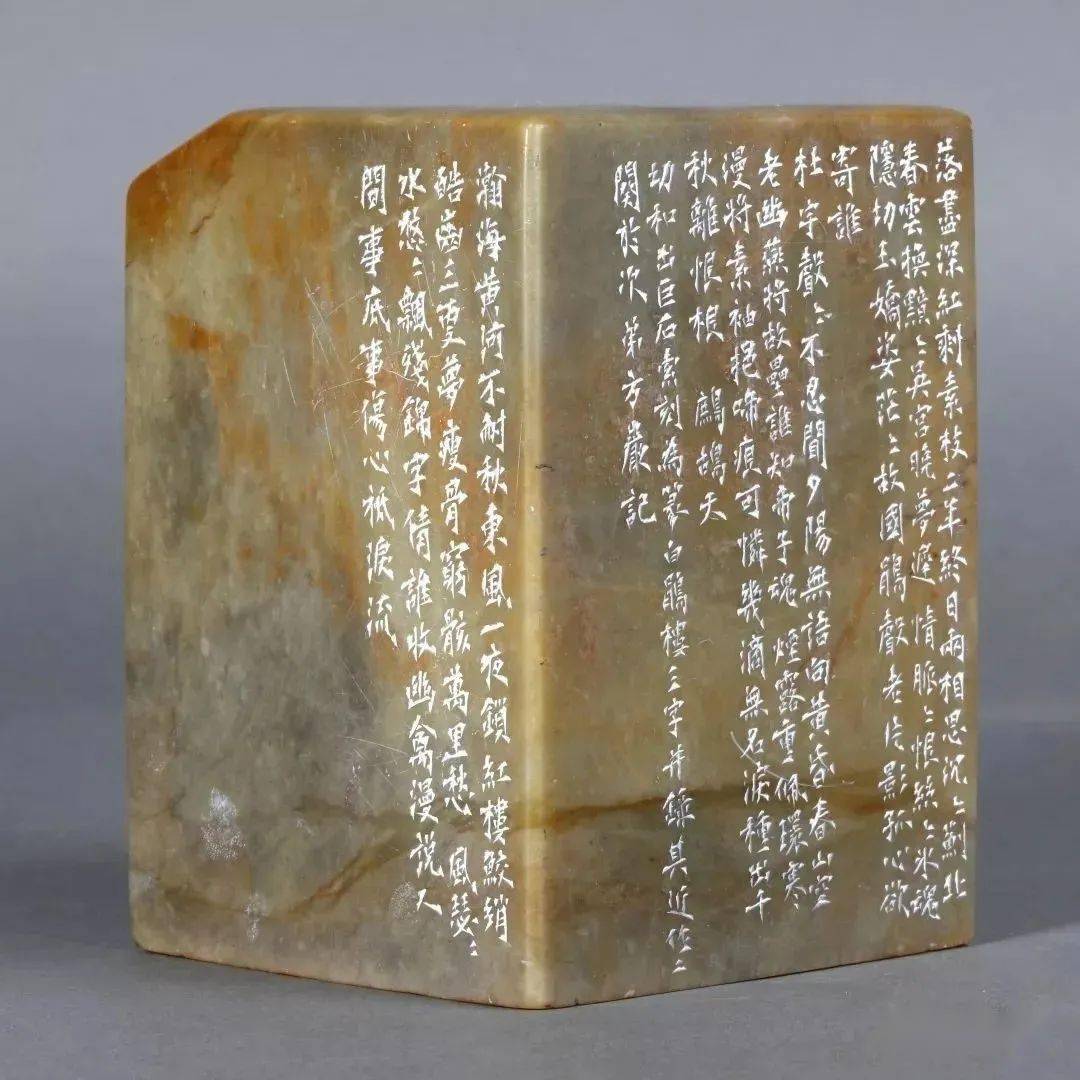 落盡深紅剩素枝二年終日兩相思沉〻薊北
春雲換黯〻吳宮曉夢遲 情脈〻恨絲〻冰魂
隱切玉嬌姿茫〻故國鵑聲老片影孤心欲
寄誰
杜宇聲〻不忍聞夕陽無語向黃昏春山空
老幽燕將故壘誰知帝子魂 煙露重佩環寒
漫將素袖挹啼痕可憐幾滴無名淚種出千
秋離恨根 鷓鴣天
切和出巨石索刻為篆白鵑樓三字並錄其近作二
闋於次 第方巖記
瀚海黃河不耐秋東風一夜鎖紅樓鮫綃
皓齒三更夢 瘦骨窮骸萬里愁 風瑟〻
水愁〻飄殘錦字倩誰收幽禽漫說人
間事底事傷心祇淚流